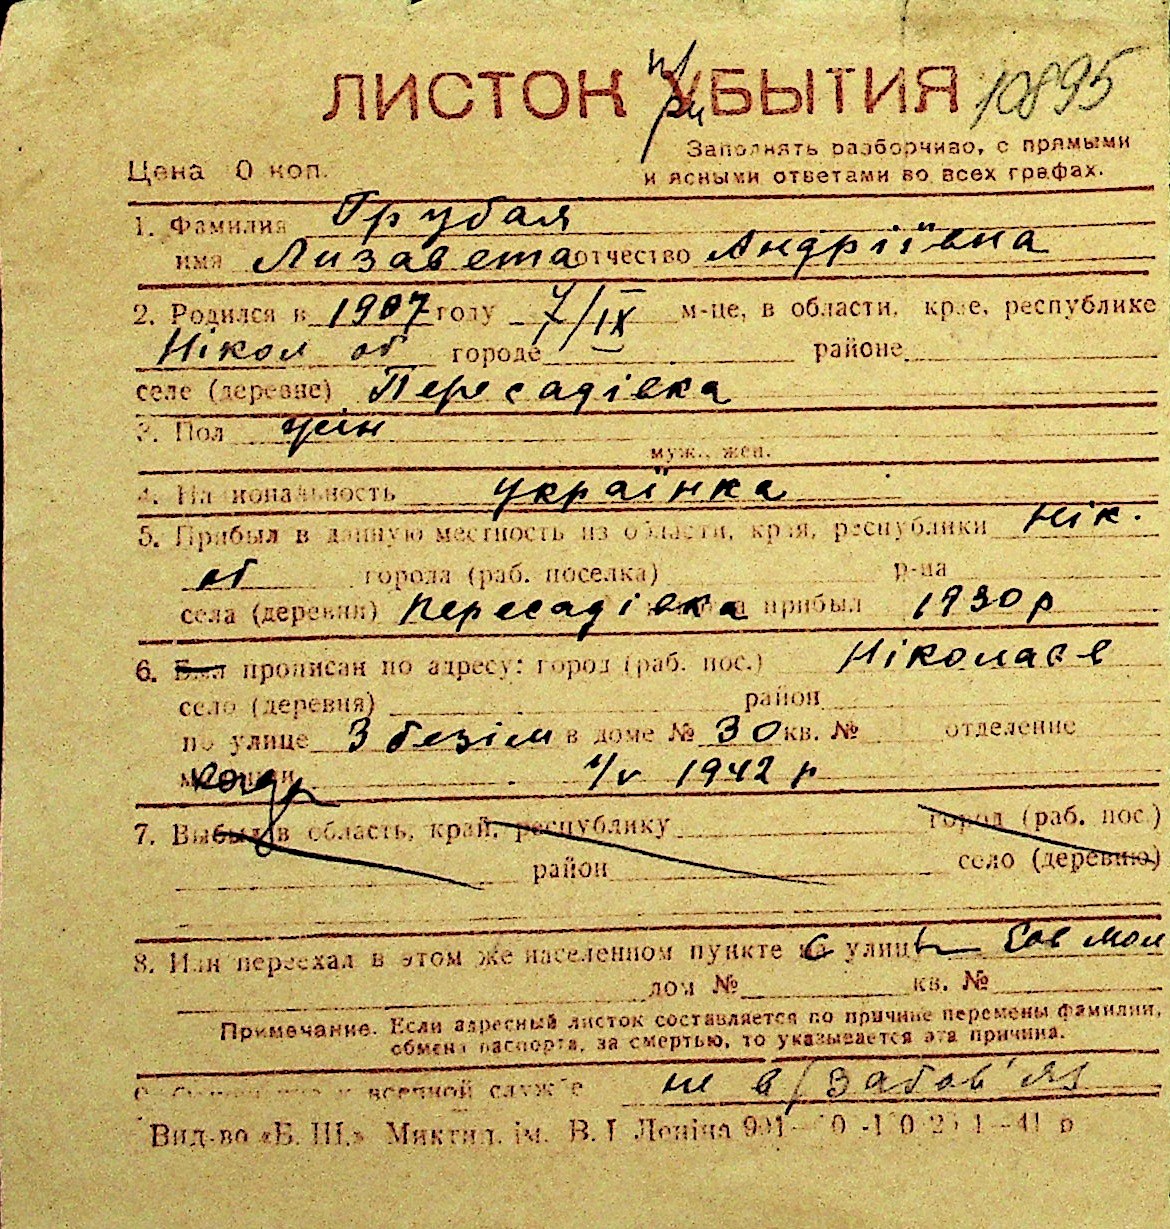 ЛИСТОК УБЫТИЯ при 10895
Цена 0 коп.
Заполнять разборчиво, с прямыми
и ясными ответами во всех графах.
1. Фамилия Грубая
имя Лизавета отчество Андріївна
2. Родился в 1907 году 7/IX м-це, в области, крае, республике
Нікол об городе районе
селе (деревне) Пересадівка
3. Пол жін
муж., жен.
4. Национальность українка
5. Прибыл в данную местность из области, края, республики Нік.
об города (раб. поселка) р-на
села (деревни) Пересадівка прибыл 1930 р
6. Был прописан по адресу: город (раб. пос.) Ніколаєв
село (деревня) район
по улице 3 безім в доме № 30 кв. № отделение
1/V 1942 р
7. Выбыл в область, край, республику город (раб. пос.)
район село (деревню)
8. Или переехал в этом же населенном пункте с улицы
дом № кв. №
Примечание. Если адресный листок составляется по причине перемены фамилии,
обмена паспорта, за смертью, то указывается эта причина.
военной службе не в/забов'яз
Вид-во «Б. Ш.» Миктип. ім. В. І Леніна